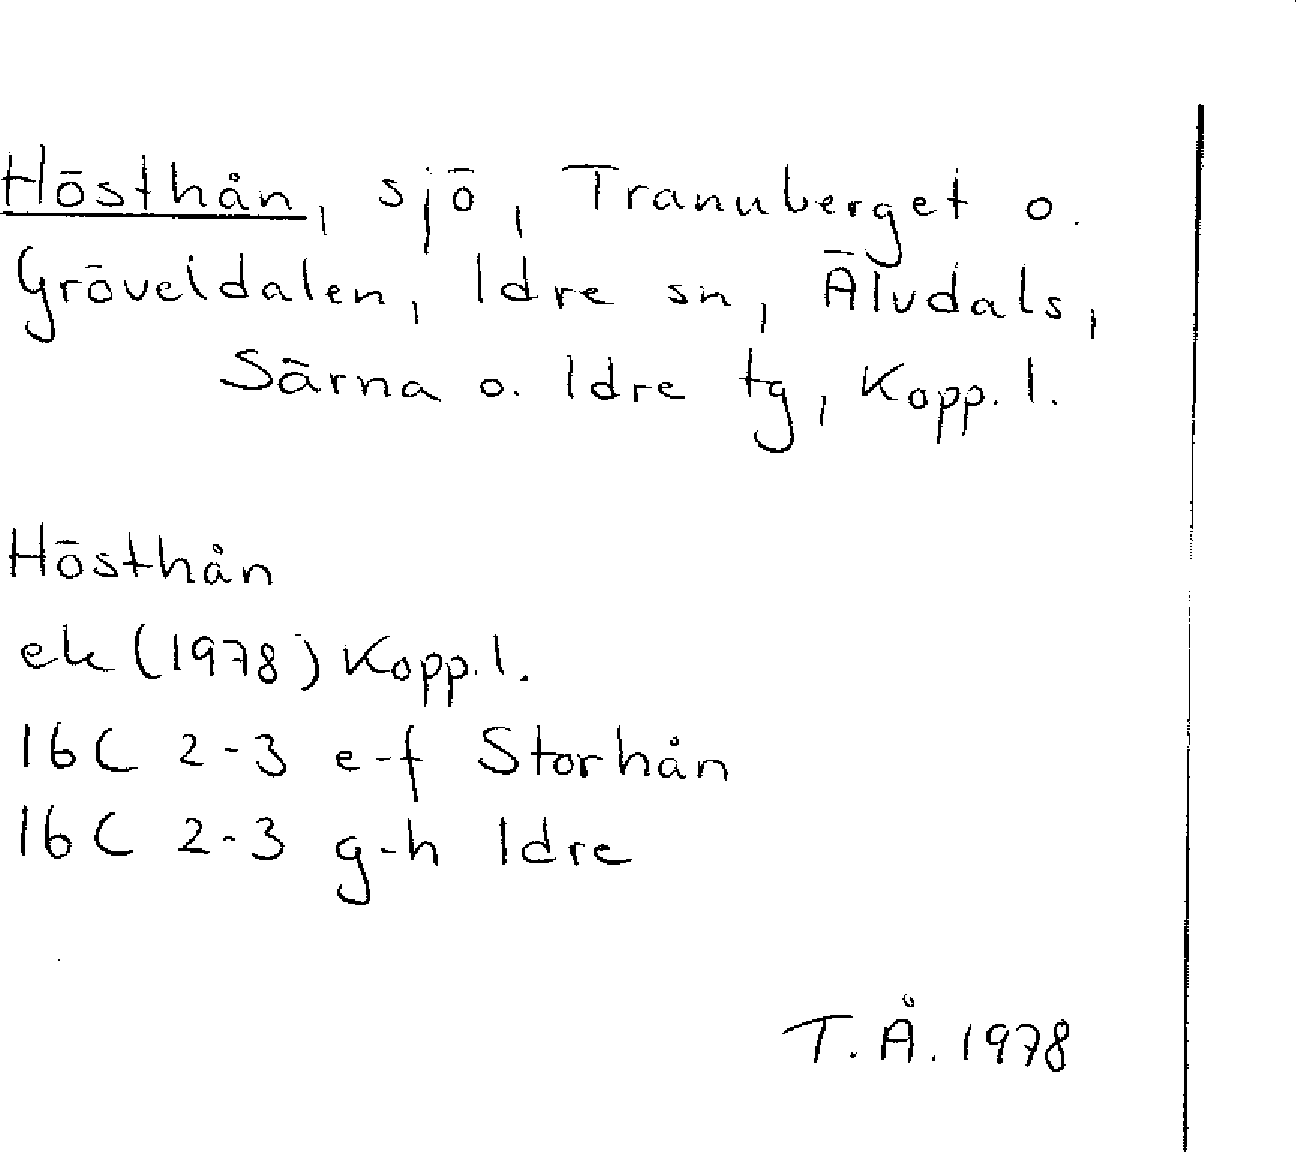 Hösthån, sjö, Tranuberget o.
Gröveldalen, Idre sn, Älvdals,
Särna o. Idre tg, Kopp. l.
Hösthån
ek (1978) Kopp. l.
16C 2-3 e-f Storhån
16C 2-3 g-h Idre
T.Å. 1978